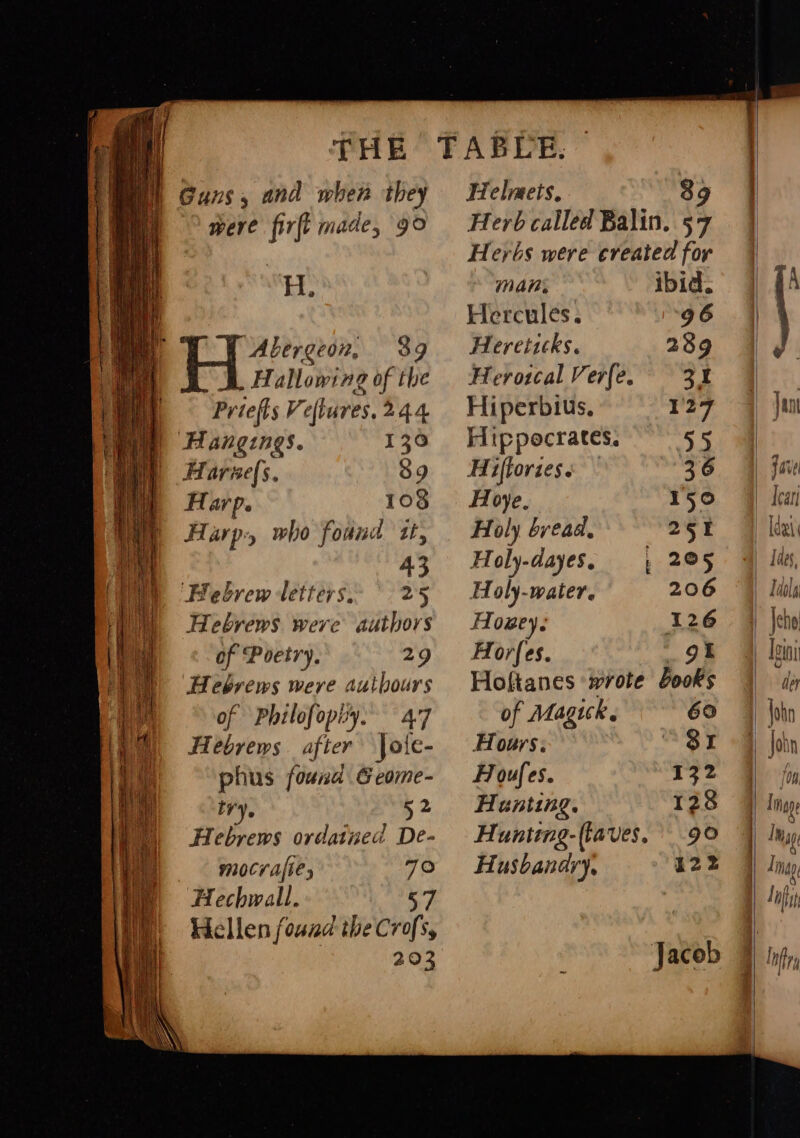 THE TABLE.
Guns, and when they
were firſt made, 90
H.
HAbergeon, 89
Hallowing of the
Prieſts Veſtures. 244
Hangings. 130
Harneſs. 89
Harp. 108
Harp, who found it,
43
Hebrew letters. 25
Hebrews were authors
of Poetry. 29
Hebrews were authours
of Philoſophy. 47
Hebrews after Joſe-
phus found Geome-
try. 52
Hebrews ordained De-
mocraſie, 70
Hechwall. 57
Hellen found the Croſs,
203
Helmets. 89
Herb called Balin. 57
Herbs were created for
man. ibid.
Hercules. 96
Hereticks. 289
Heroical Verſe. 31
Hiperbius. 127
Hippocrates. 55
Hiſtories. 36
Hoye. 150
Holy bread. 251
Holy-dayes. 205
Holy-water. 206
Honey. 126
Horſes. 91
Hoſtanes wrote books
of Magick. 60
Hours. 81
Houſes. 132
Hunting. 128
Hunting-ſtaves. 90
Husbandry. 122
Jacob
Jani
Jave
Icari
Ides,
Idola
Jeho
der
John
John
Image
Imag
Imag